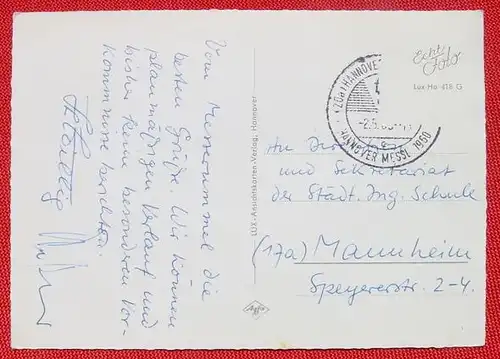 Vom Messerummel die
besten Grüße. Wir können
planmäßigen Verlauf und
bisher keine besonderen Vor-
kommnisse berichten.
LUX-Ansichtskarten-Verlag, Hannover
Agfa
(20a) HANNOVER
-2.5.60
HANNOVER MESSE 1960
Echte
Foto
Lux-Ho 418 G
An Direktion
und Sekretariat
der Städt. Ing. Schule
(17a) Mannheim
Speyererstr. 2-4.